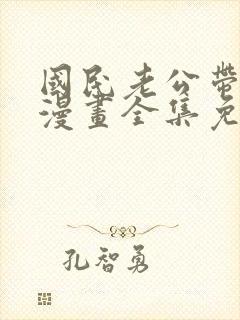 國民老公帶
漫畫全集免
孔智勇